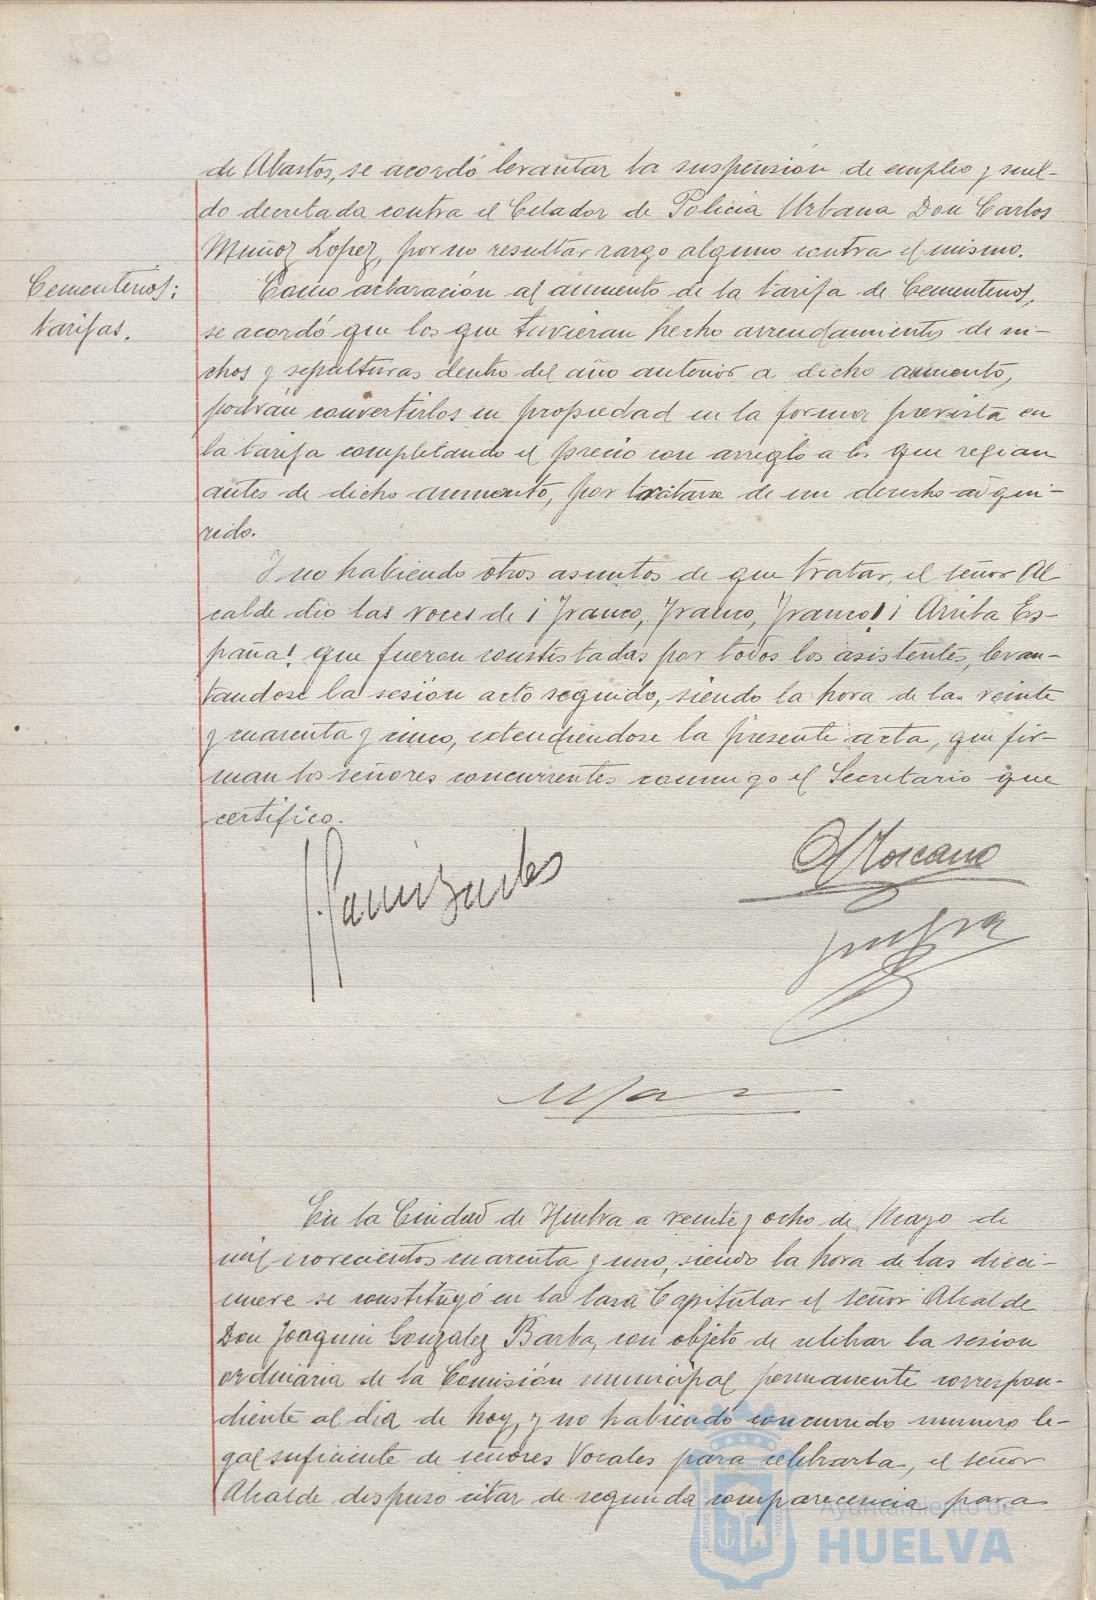 de Abastos, se acordó levantar la suspensión de empleo y suel-
do decretada contra el Celador de Policia Urbana Don Carlos
Muñoz Lopez, por no resultar cargo alguno contra el mismo.
Cementerios:
tarifas.
Como aclaración al aumento de la tarifa de Cementerios,
se acordó que los que tuvieran hecho arrendamientos de ni-
chos y sepulturas dentro del año anterior a dicho aumento,
podrán convertirlos en propiedad en la forma prevista en
la tarifa completando el precio con arreglo a los que regian
antes de dicho aumento, por tratarse de un derecho adqui-
rido.
Y no habiendo otros asuntos de que tratar, el señor Al
calde dio las voces de ¡Franco, Franco, Franco! ¡Arriba Es-
paña! que fueron constestadas por todos los asistentes, levan-
tandose la sesión acto seguido, siendo la hora de las veinte
y cuarenta y cinco, extendiendose la presente acta, que fir-
man los señores concurrentes conmigo el Secretario que
certifico.
Moscano
En la Ciudad de Huelva a veinte y ocho de Mayo de
mil novecientos cuarenta y uno, siendo la hora de las dieci-
nueve se constituyó en la Casa Capitular el señor Alcalde
Don Joaquin Gonzalez Barba, con objeto de celebrar la sesion
ordinaria de la Comisión municipal permanente correspon-
diente al dia de hoy, y no habiendo concurrido numero le-
gal suficiente de señores Vocales para celebrarla, el señor
Alcalde dispuso citar de segunda comparecencia para
Ayuntamiento de
HUELVA